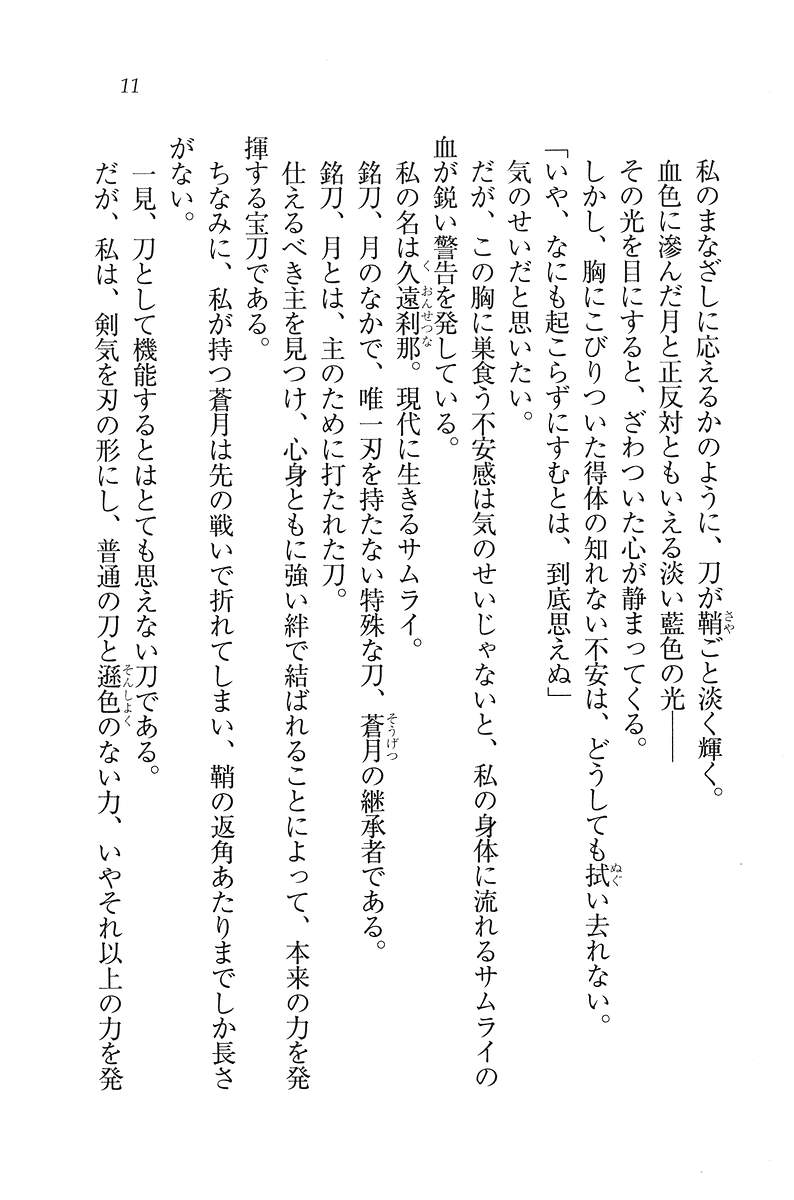 11
私のまなざしに応えるかのように、刀が鞘ごと淡く輝く。
血色に滲んだ月と正反対ともいえる淡い藍色の光――
その光を目にすると、ざわついた心が静まってくる。
しかし、胸にこびりついた得体の知れない不安は、どうしても拭い去れない。
「いや、なにも起こらずにすむとは、到底思えぬ」
気のせいだと思いたい。
だが、この胸に巣食う不安感は気のせいじゃないと、私の身体に流れるサムライの
血が鋭い警告を発している。
私の名は久遠刹那。現代に生きるサムライ。
銘刀、月のなかで、唯一刃を持たない特殊な刀、蒼月の継承者である。
銘刀、月とは、主のために打たれた刀。
仕えるべき主を見つけ、心身ともに強い絆で結ばれることによって、本来の力を発
揮する宝刀である。
ちなみに、私が持つ蒼月は先の戦いで折れてしまい、鞘の返角あたりまでしか長さ
がない。
一見、刀として機能するとはとても思えない刀である。
だが、私は、剣気を刃の形にし、普通の刀と遜色のない力、いやそれ以上の力を発